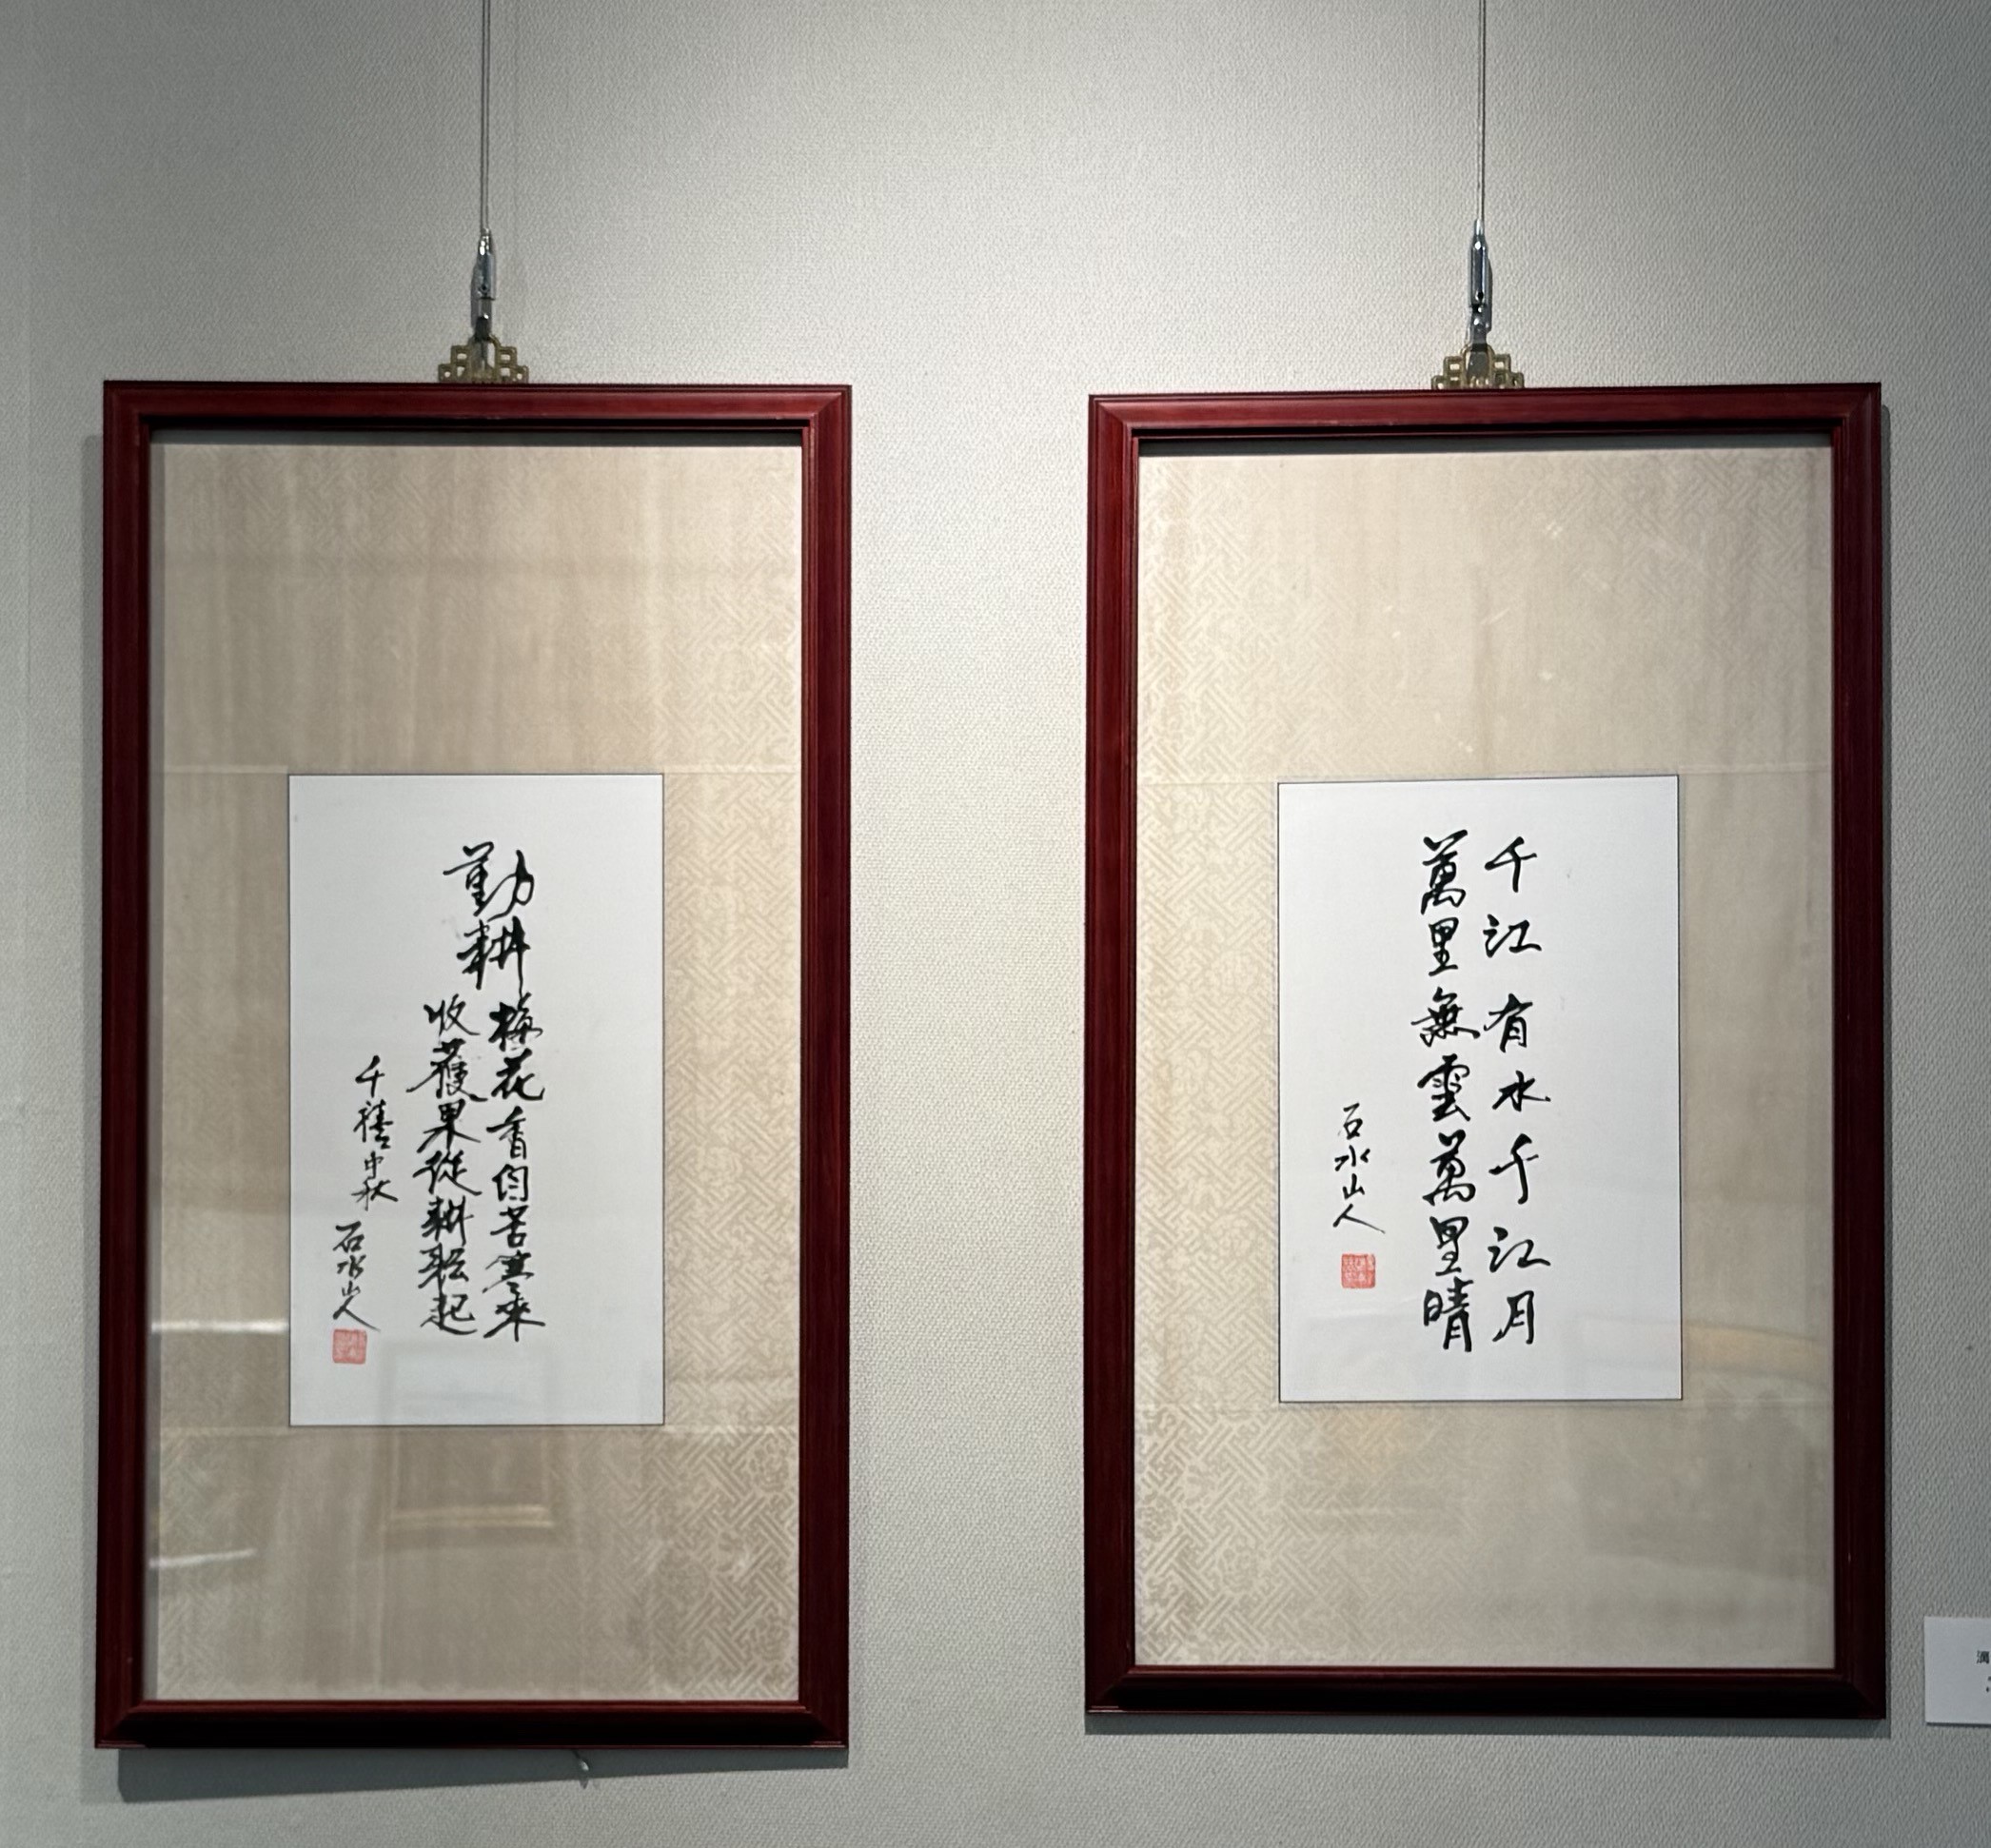 勤耕
梅花香自苦寒來
收穫果從耕耘起
千禧中秋
石水山人
千江有水千江月
萬里無雲萬里晴
石水山人